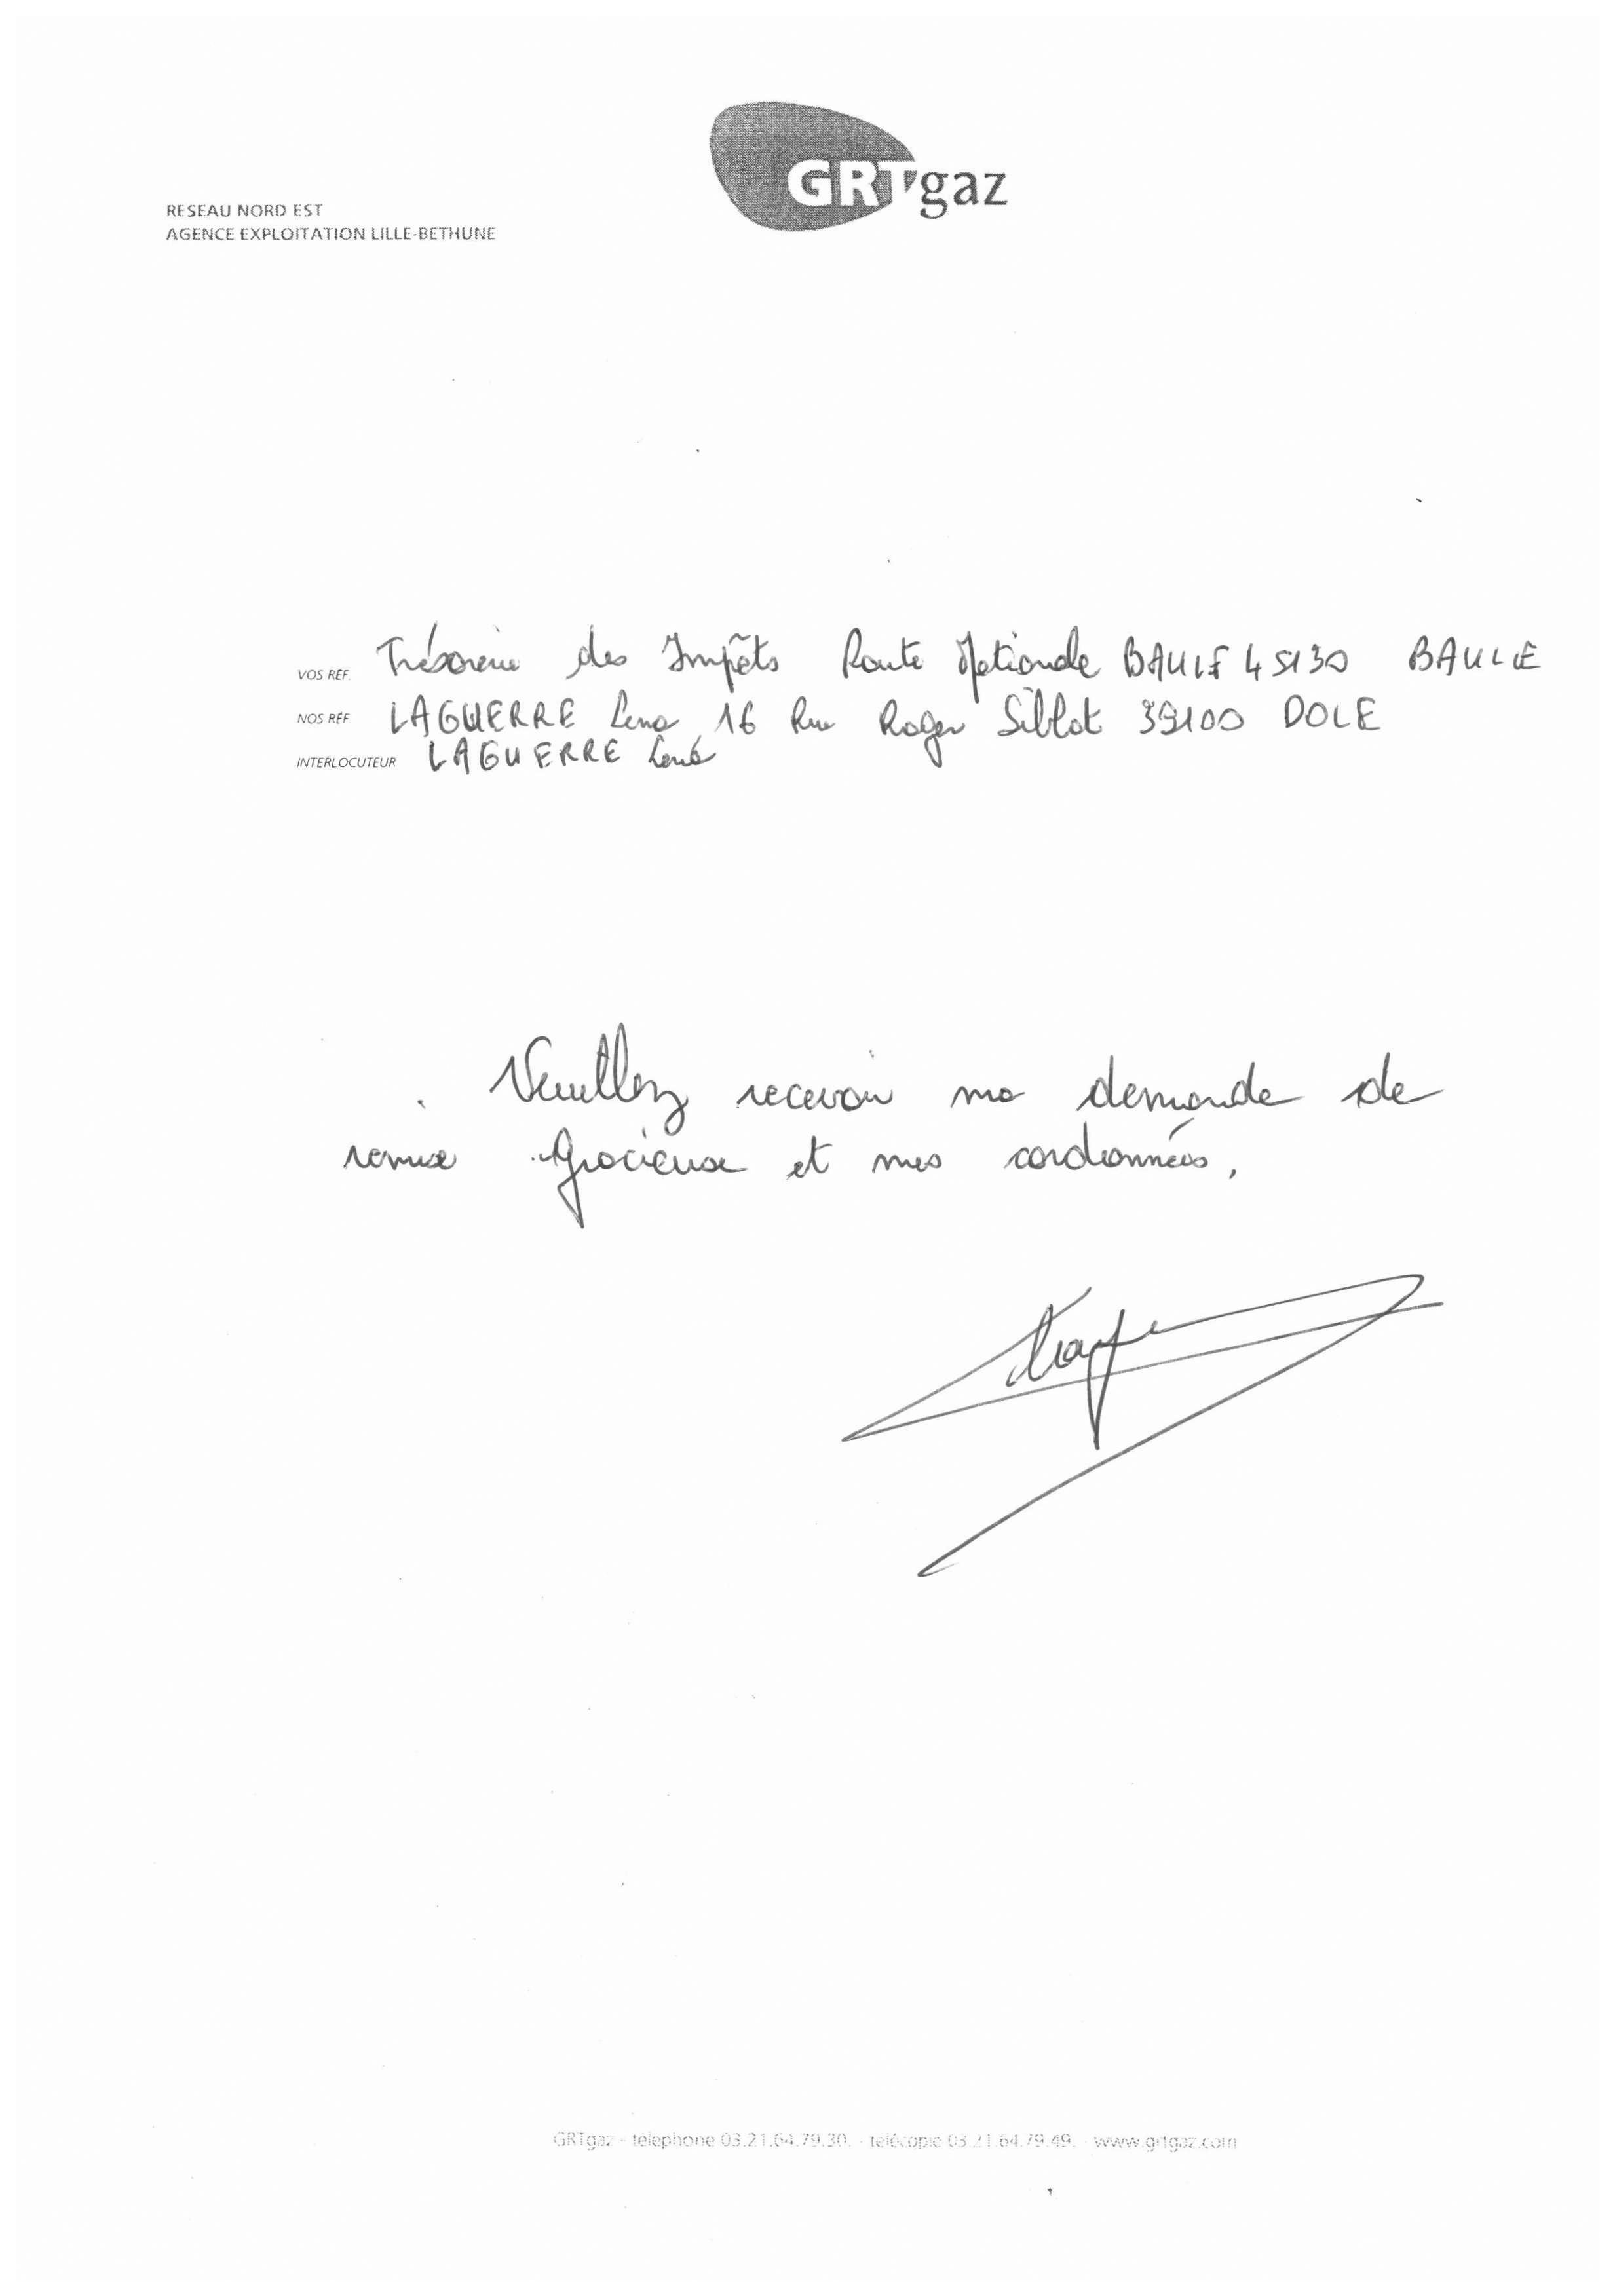 GRTgaz
RESEAU NORD EST
AGENCE EXPLOITATION LILLE-BETHUNE
VOS RÉF. Trésorerie des Impôts Route Nationale BAULE 45130 BAULE
NOS RÉF. LAGUERRE Lena 16 Rue Roger Siblot 39100 DOLE
INTERLOCUTEUR LAGUERRE Lena
. Veuillez recevoir ma demande de
remise Gracieuse et mes cordonnées.
GRTgaz - telephone 03.21.64.79.30. - télécopie 03.21.64.79.49. - www.grtgaz.com